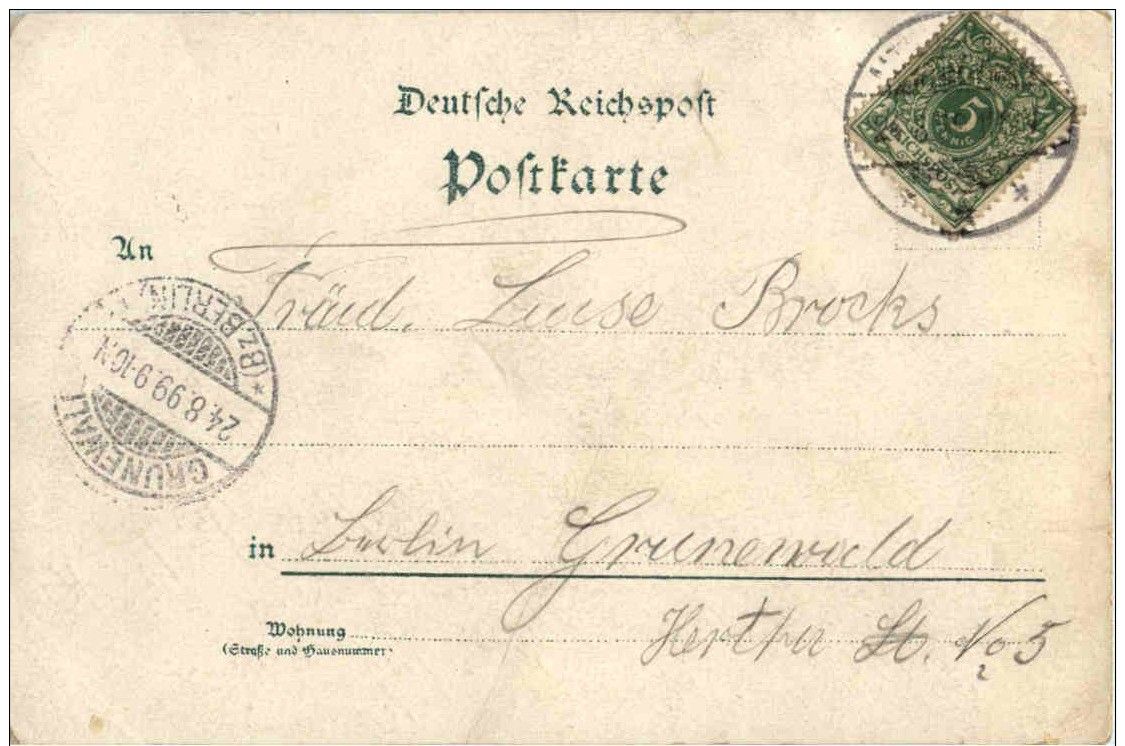 Deutsche Reichspost
Postkarte
5
REICHSPOST
An
Fräul. Luise Brocks
(BZ. BERLIN)
24.8.99.9-10.N.
GRUNEWALD
in Berlin Grunewald
Wohnung
(Straße und Hausnummer)
Hertha St. No 5